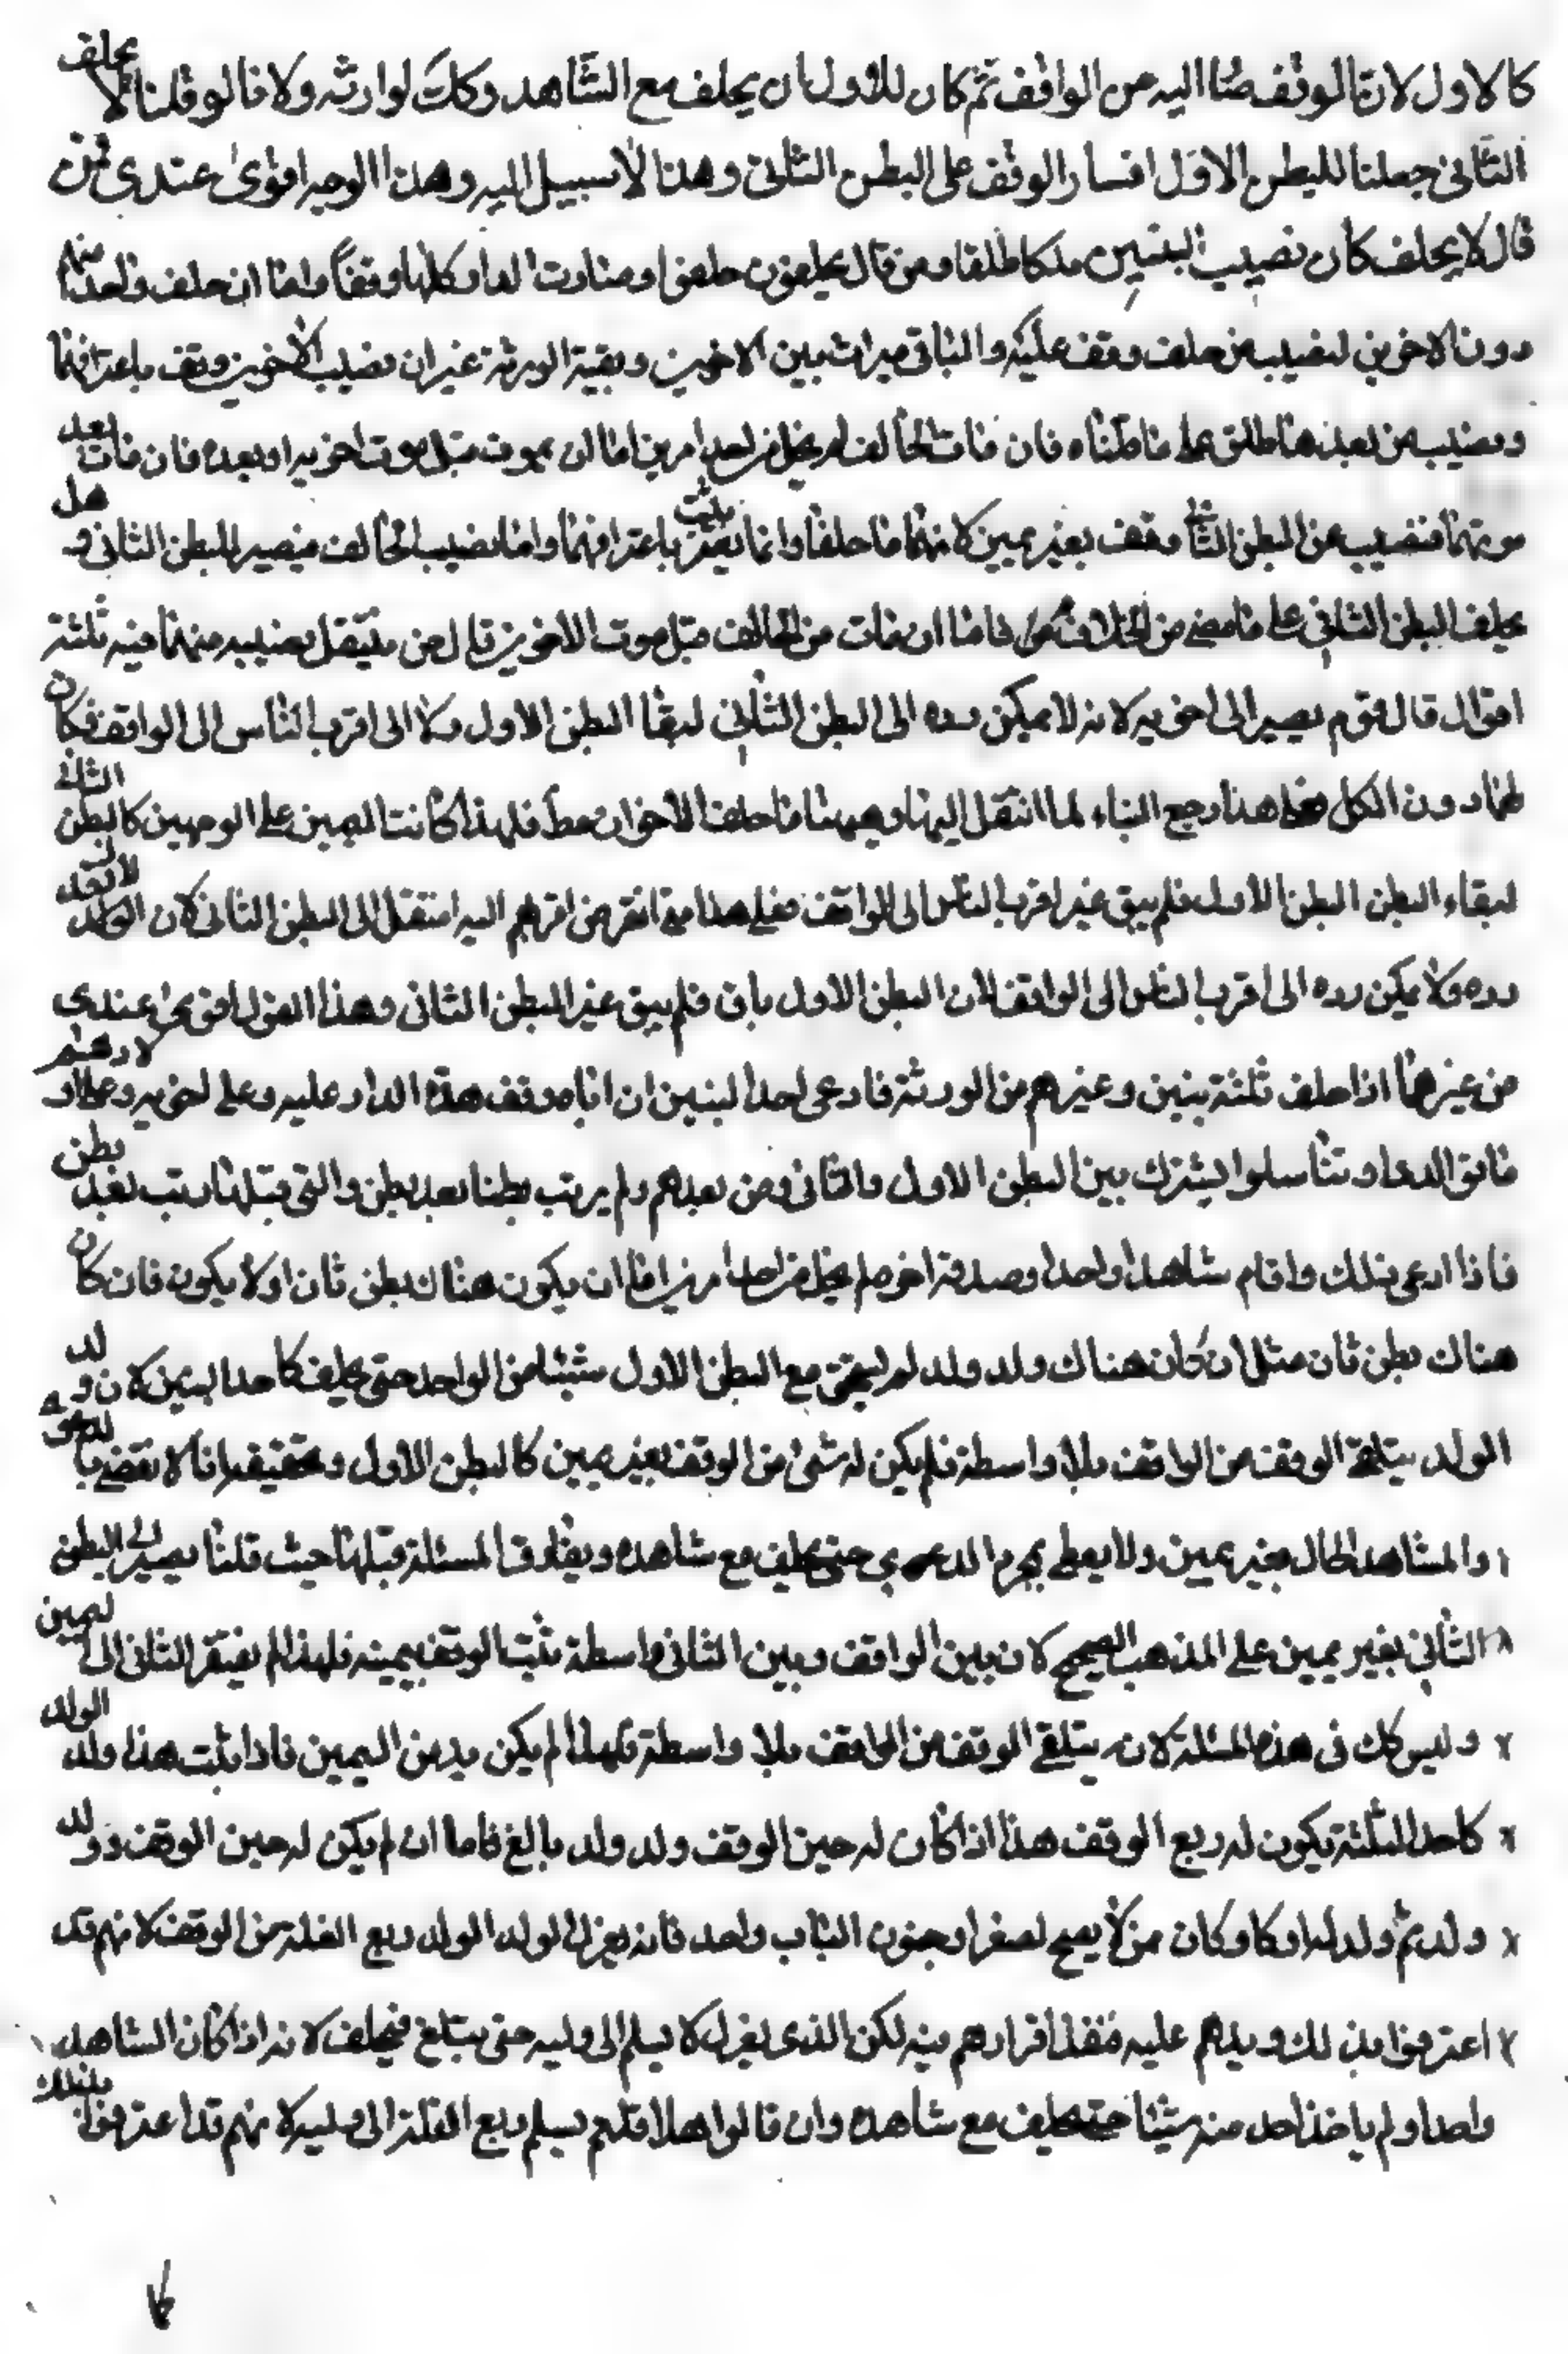 كالاول لان الوقف صار اليه من الواقف ثم كان للاول ان يحلف مع الشاهد وكك لوارثه ولانا لو قلنا لا يحلف
الثاني جعلنا للبطن الاول افساد الوقف على البطن الثاني وهذا لا سبيل اليه وهذا الوجه اقوى عندي فمن
قال لا يحلف كان نصيب البنين ملكا طلقا ومن قال يحلفون حلفوا وصارت الدار كلها وقفا واما ان حلف واحد منهم
دون الاخوين فنصيب من حلف وقف عليه والباقي ميراث بين الاخوين وبقية الورثة غير ان نصيب الاخوين وقف باعترافهما
ونصيب من بعد هذا طلق على ما قلناه فان مات الحالف لم يخل من احد امرين اما ان يموت قبل موت اخويه او بعده فان مات بعد
موتهما فنصيب من البطن الثاني وقف بغير يمين لانهما ما حلفا وانما يثبت باعترافهما واما نصيب الحالف فيصير للبطن الثاني وهل
يحلف البطن الثاني على ما مضى من الخلاف فاما ان مات من الحالف قبل موت الاخوين قال من ينتقل نصيبه منهما فيه ثلثة
اقوال قال قوم يصير الى اخويه لانه لا يمكن رده الى البطن الثاني لبقاء البطن الاول ولا الى اقرب الناس الى الواقف فكان
لهما دون الكل فعلى هذا رجع البناء لما انتقل اليهما وهيهنا ما حلف الاخوان قط فلهذا كانت اليمين على الوجهين كالبطن الثاني
لبقاء البطن البطن الاول فلم يبق غير اقرب الناس الى الواقف فعلى هذا متى انقرض اقربهم اليه انتقل الى البطن الثاني لان
رده ولا يمكن رده الى اقرب الناس الى الواقف لان البطن الاول باق فلم يبق غير البطن الثاني وهذا القول اقوى عندي
من غيرهما اذا خلف ثلثة بنين وغيرهم من الورثة فادعى احد البنين ان اباه وقف هذه الدار عليه وعلى اخويه وعلى اولادهم
ما بقي الدهر وتناسلوا ليشترك بين البطن الاول والثاني ومن بعدهم ولم يرتب بطنا بعد بطن والتي قبلها رتب بعد بطن
فاذا ادعى ذلك واقام شاهدا واحدا وصدقه اخوه لم يخل من احد امرين اما ان يكون هناك بطن ثان او لا يكون فان كان
هناك بطن ثان مثل ان كان هناك ولد ولد لم يستحق مع البطن الاول شيئا من الواحد حتى يحلف كاحد البنين لان ولد
الولد يتلقى الوقف من الواقف بلا واسطة فلم يكن له شيء من الوقف بغير يمين كالبطن الاول وتحقيقه انا لا نقضي بالدعوى
والشاهد الحال بغير يمين ولا يعطى بمجرد الدعوى حتى يحلف مع شاهده ويفارق المسئلة قبلها حيث قلنا يصير الى البطن
الثاني بغير يمين على المذهب الصحيح لان بين الواقف وبين الثاني واسطة يثبت الوقف بيمينه فلهذا لم يفتقر الثاني الى اليمين
وليس كك في هذه المسئلة لانه يتلقى الوقف من الواقف بلا واسطة فلهذا لم يكن بد من اليمين فاذا ثبت هذا ولد الولد
كاحد الثلثة يكون له ربع الوقف هذا اذا كان له حين الوقف ولد ولد بالغ فاما ان لم يكن له حين الوقف ولد
ولد ثم ولد له او كان من لا يصح لصغر او جنون الباب واحد فانه يعزل لولد الولد ربع الغلة من الوقف لانهم قد
اعترفوا بذلك ويدهم عليه فنفذ اقرارهم فيه لكن الذي يعزل لا يسلم الى وليه حتى يبلغ فيحلف لانه اذا كان الشاهد
واحدا ولم ياخذ احد منه شيئا حتى يحلف مع شاهده وان قالوا هلا قلتم يسلم ربع الغلة الى وليه لانهم قد اعترفوا بذلك